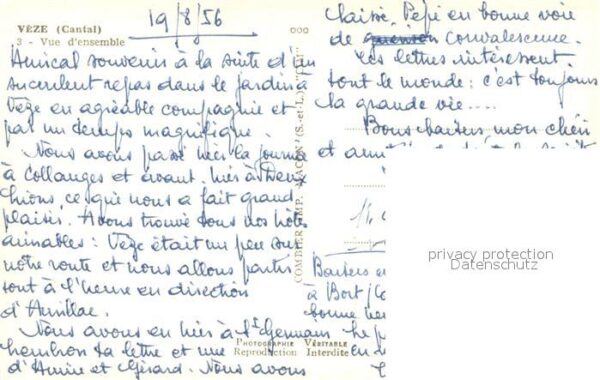 VÈZE (Cantal)
3 - Vue d'ensemble
19/8/56
Amical souvenir à la suite d'un
succulent repas dans le jardin
Vèze en agréable compagnie et
par un temps magnifique.
Nous avons passé hier la journée
à Collanges et avant-hier à
ce que nous a fait grand
plaisir. Avons trouvé tous nos hôtes
aimables : Vèze était un peu sur
notre route et nous allons partir
tout à l'heure en direction
d'Aurillac.
Nous avons eu hier à St Germain
Lembron ta lettre et une
d'Annie et Gérard. Nous avons
COMBIER IMP. MACON (S.-et-L.)
PHOTOGRAPHIE VÉRITABLE
Reproduction Interdite
Pépi en bonne voie
de convalescence.
Tes lettres intéressent
tout le monde : c'est toujours
la grande vie....
Bons baisers mon chéri
et
Baisers
à Bort
bonne
le
en
privacy protection
Datenschutz